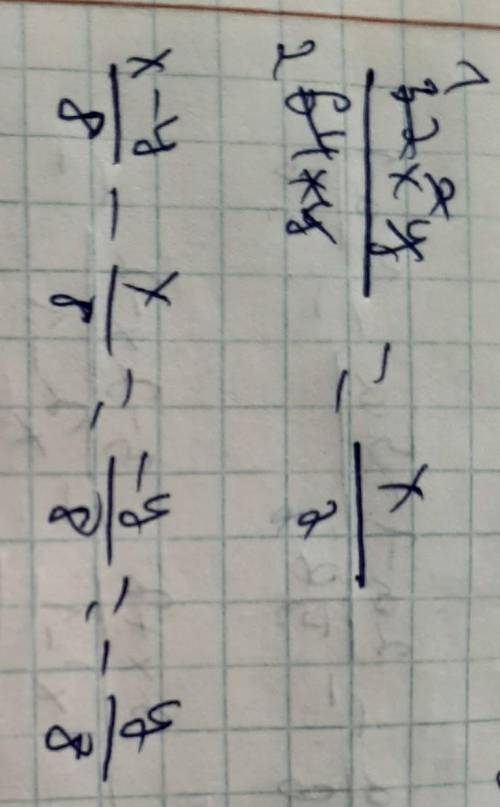 32x²y / 64xy = x / 2
x-y / 8 - x / 8 = -y / 8 = - y / 8